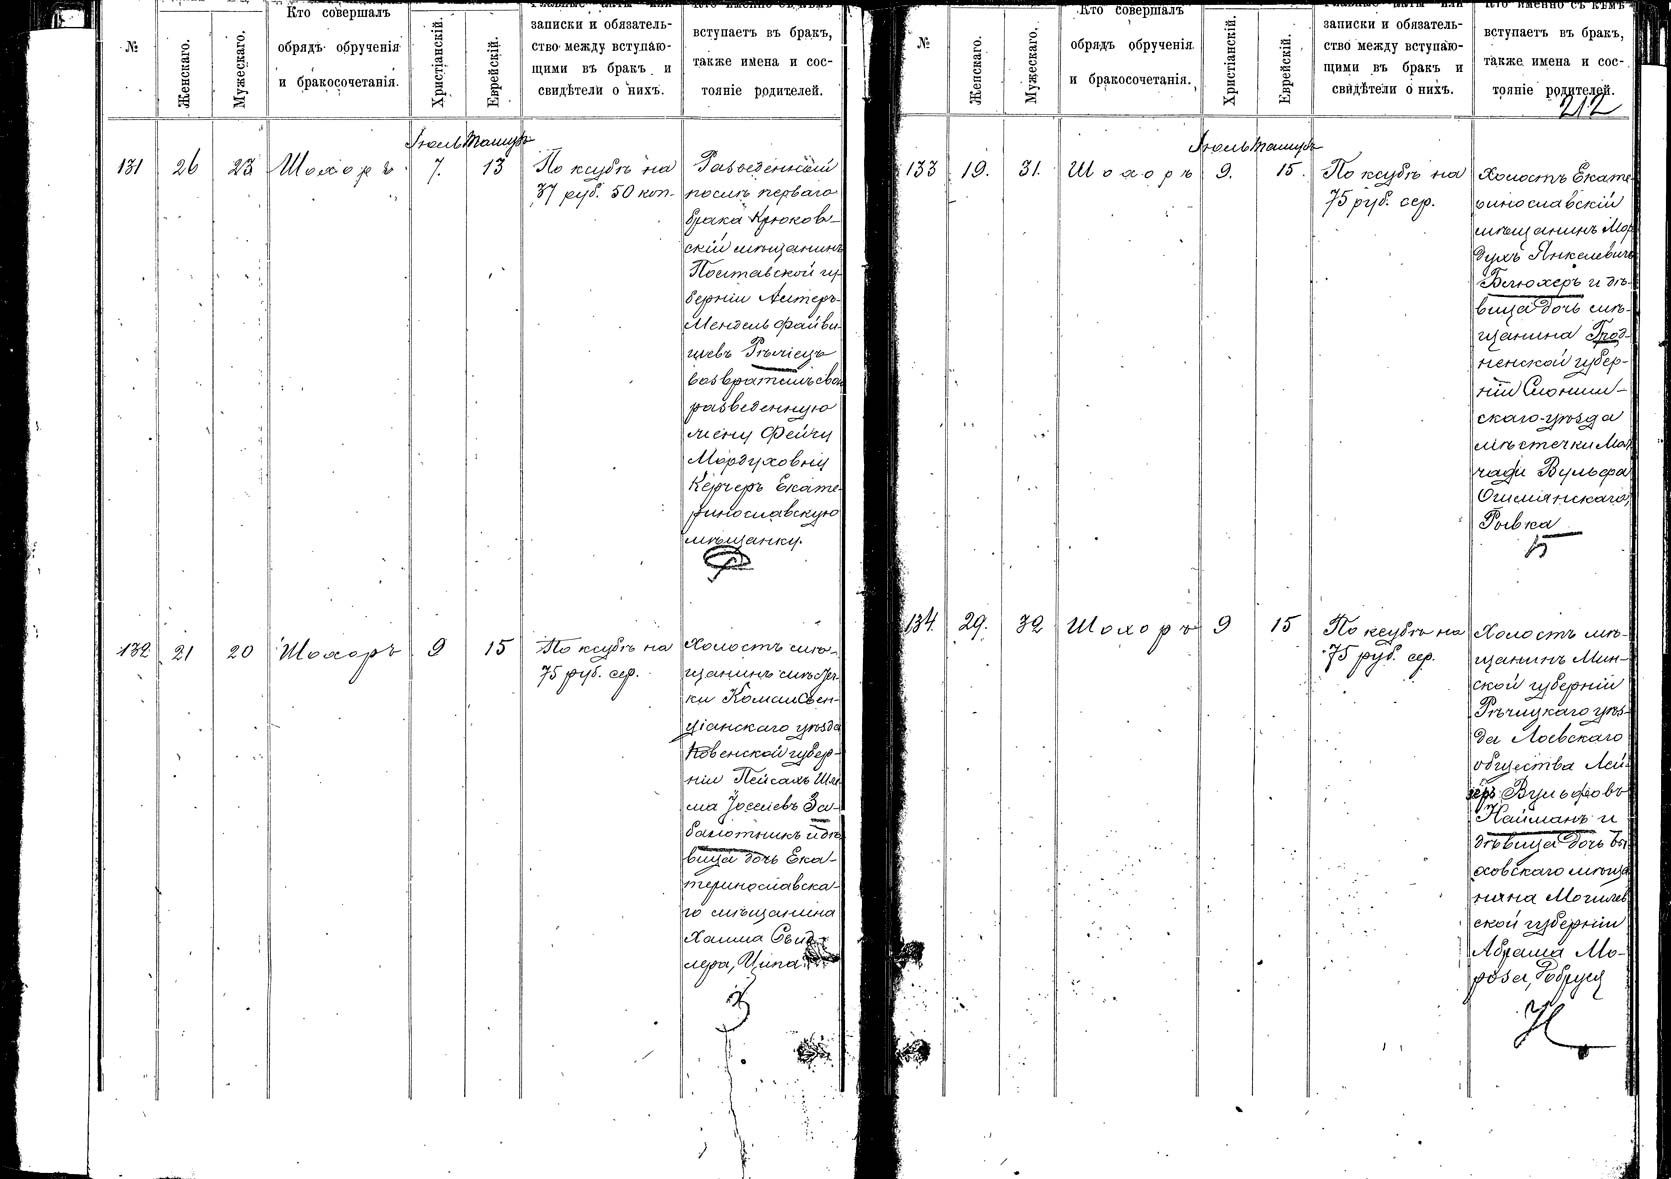 №
Женскаго.
Мужескаго.
Кто совершалъ
обрядъ обрученія
и бракосочетанія.
Христіанскій.
Еврейскій.
записки и обязатель-
ство между вступаю-
щими въ бракъ и
свидѣтели о нихъ.
вступаетъ въ бракъ,
также имена и сос-
тояніе родителей.
Іюль
131
26
23
Шохоръ
7.
13
По ксубѣ на
37 руб. 50 коп.
Разведенный
послѣ перваго
брака Крюков-
скій мѣщанинъ
Полтавской гу-
берніи
Мендель Файви-
шевъ
возвратилъ свою
разведенную
жену Фейгу
Мордуховну
Керчеръ Екате-
ринославскую
мѣщанку.
Ф
132
21
20
Шохоръ
9
15
По ксубѣ на
75 руб. сер.
Холостъ мѣ-
щанинъ мѣстеч-
ки Комаи Свен-
ціанскаго уѣзда
Ковенской губер-
ніи Пейсахъ Шле-
ма Іоселевъ За-
балотникъ и дѣ-
вица дочь Ека-
теринославска-
го мѣщанина
Хаима Свид-
лера, Ципа
З
№
Женскаго.
Мужескаго.
Кто совершалъ
обрядъ обрученія
и бракосочетанія.
Христіанскій.
Еврейскій.
записки и обязатель-
ство между вступаю-
щими въ бракъ и
свидѣтели о нихъ.
Кто именно съ кѣмъ
вступаетъ въ бракъ,
также имена и сос-
тояніе родителей.
212
Іюль
133
19.
31.
Шохоръ
9.
15.
По ксубѣ на
75 руб. сер.
Холостъ Екате-
ринославскій
мѣщанинъ Мор-
духъ Янкелевичъ
Блюхеръ и дѣ-
вица дочь мѣ-
щанина Грод-
ненской губер-
ніи Слоним-
скаго уѣзда
мѣстечки Мол-
чади Вульфа
Ошмянскаго,
Рывка
Б
134.
29.
32
Шохоръ
9
15
По ксубѣ на
75 руб. сер.
Холостъ мѣ-
щанинъ Мин-
ской губерніи
Рѣчицкаго уѣз-
да Лоевскаго
общества Лей-
зеръ Вульфовъ
Найманъ и
дѣвица дочь Бы-
ховскаго мѣща-
нина Могилев-
ской губерніи
Абрама Мо-
роза, Добруся
Н